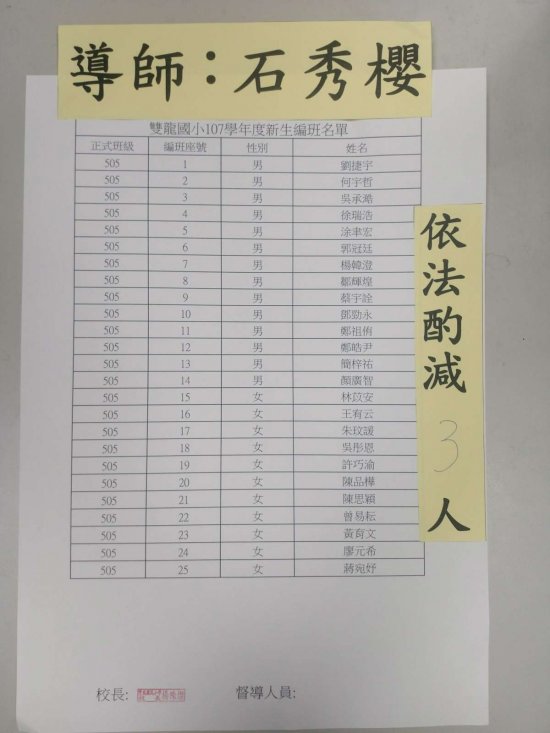 導師：石秀櫻
雙龍國小107學年度新生編班名單
正式班級 編班座號 性別 姓名
505 1 男 劉捷宇
505 2 男 何宇哲
505 3 男 吳承澔
505 4 男 徐瑞浩
505 5 男 涂聿宏
505 6 男 郭冠廷
505 7 男 楊幃澄
505 8 男 鄒輝煌
505 9 男 蔡宇詮
505 10 男 鄧勁永
505 11 男 鄭祖侑
505 12 男 鄭皓尹
505 13 男 簡梓祐
505 14 男 顏廣智
505 15 女 林苡安
505 16 女 王宥云
505 17 女 朱玟諼
505 18 女 吳彤恩
505 19 女 許巧渝
505 20 女 陳品樺
505 21 女 陳思穎
505 22 女 曾易耘
505 23 女 黃育文
505 24 女 廖元希
505 25 女 蔣宛妤
依法酌減 3 人
校長: 督導人員: